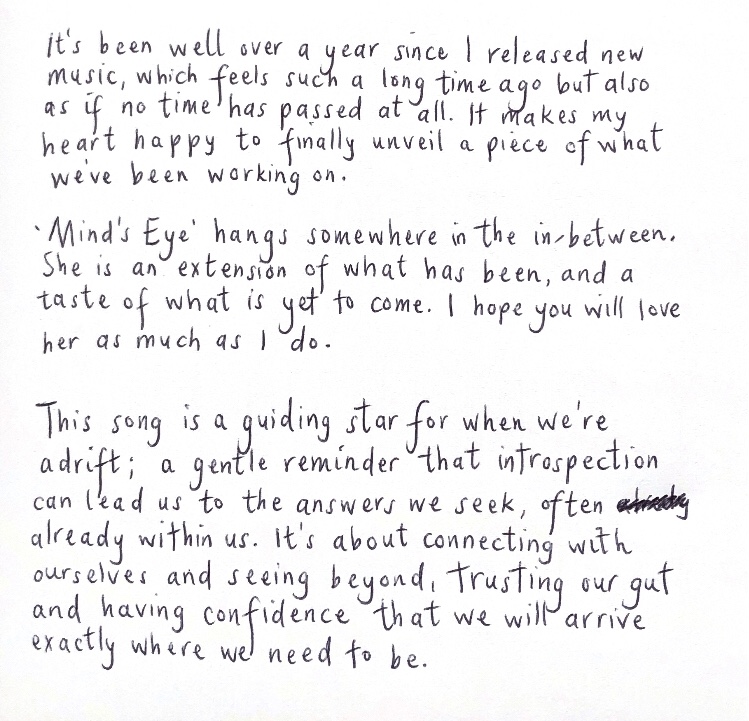 It's been well over a year since I released new
music, which feels such a long time ago but also
as if no time has passed at all. It makes my
heart happy to finally unveil a piece of what
we've been working on.
'Mind's Eye' hangs somewhere in the in-between.
She is an extension of what has been, and a
taste of what is yet to come. I hope you will love
her as much as I do.
This song is a guiding star for when we're
adrift; a gentle reminder that introspection
can lead us to the answers we seek, often
already within us. It's about connecting with
ourselves and seeing beyond, trusting our gut
and having confidence that we will arrive
exactly where we need to be.